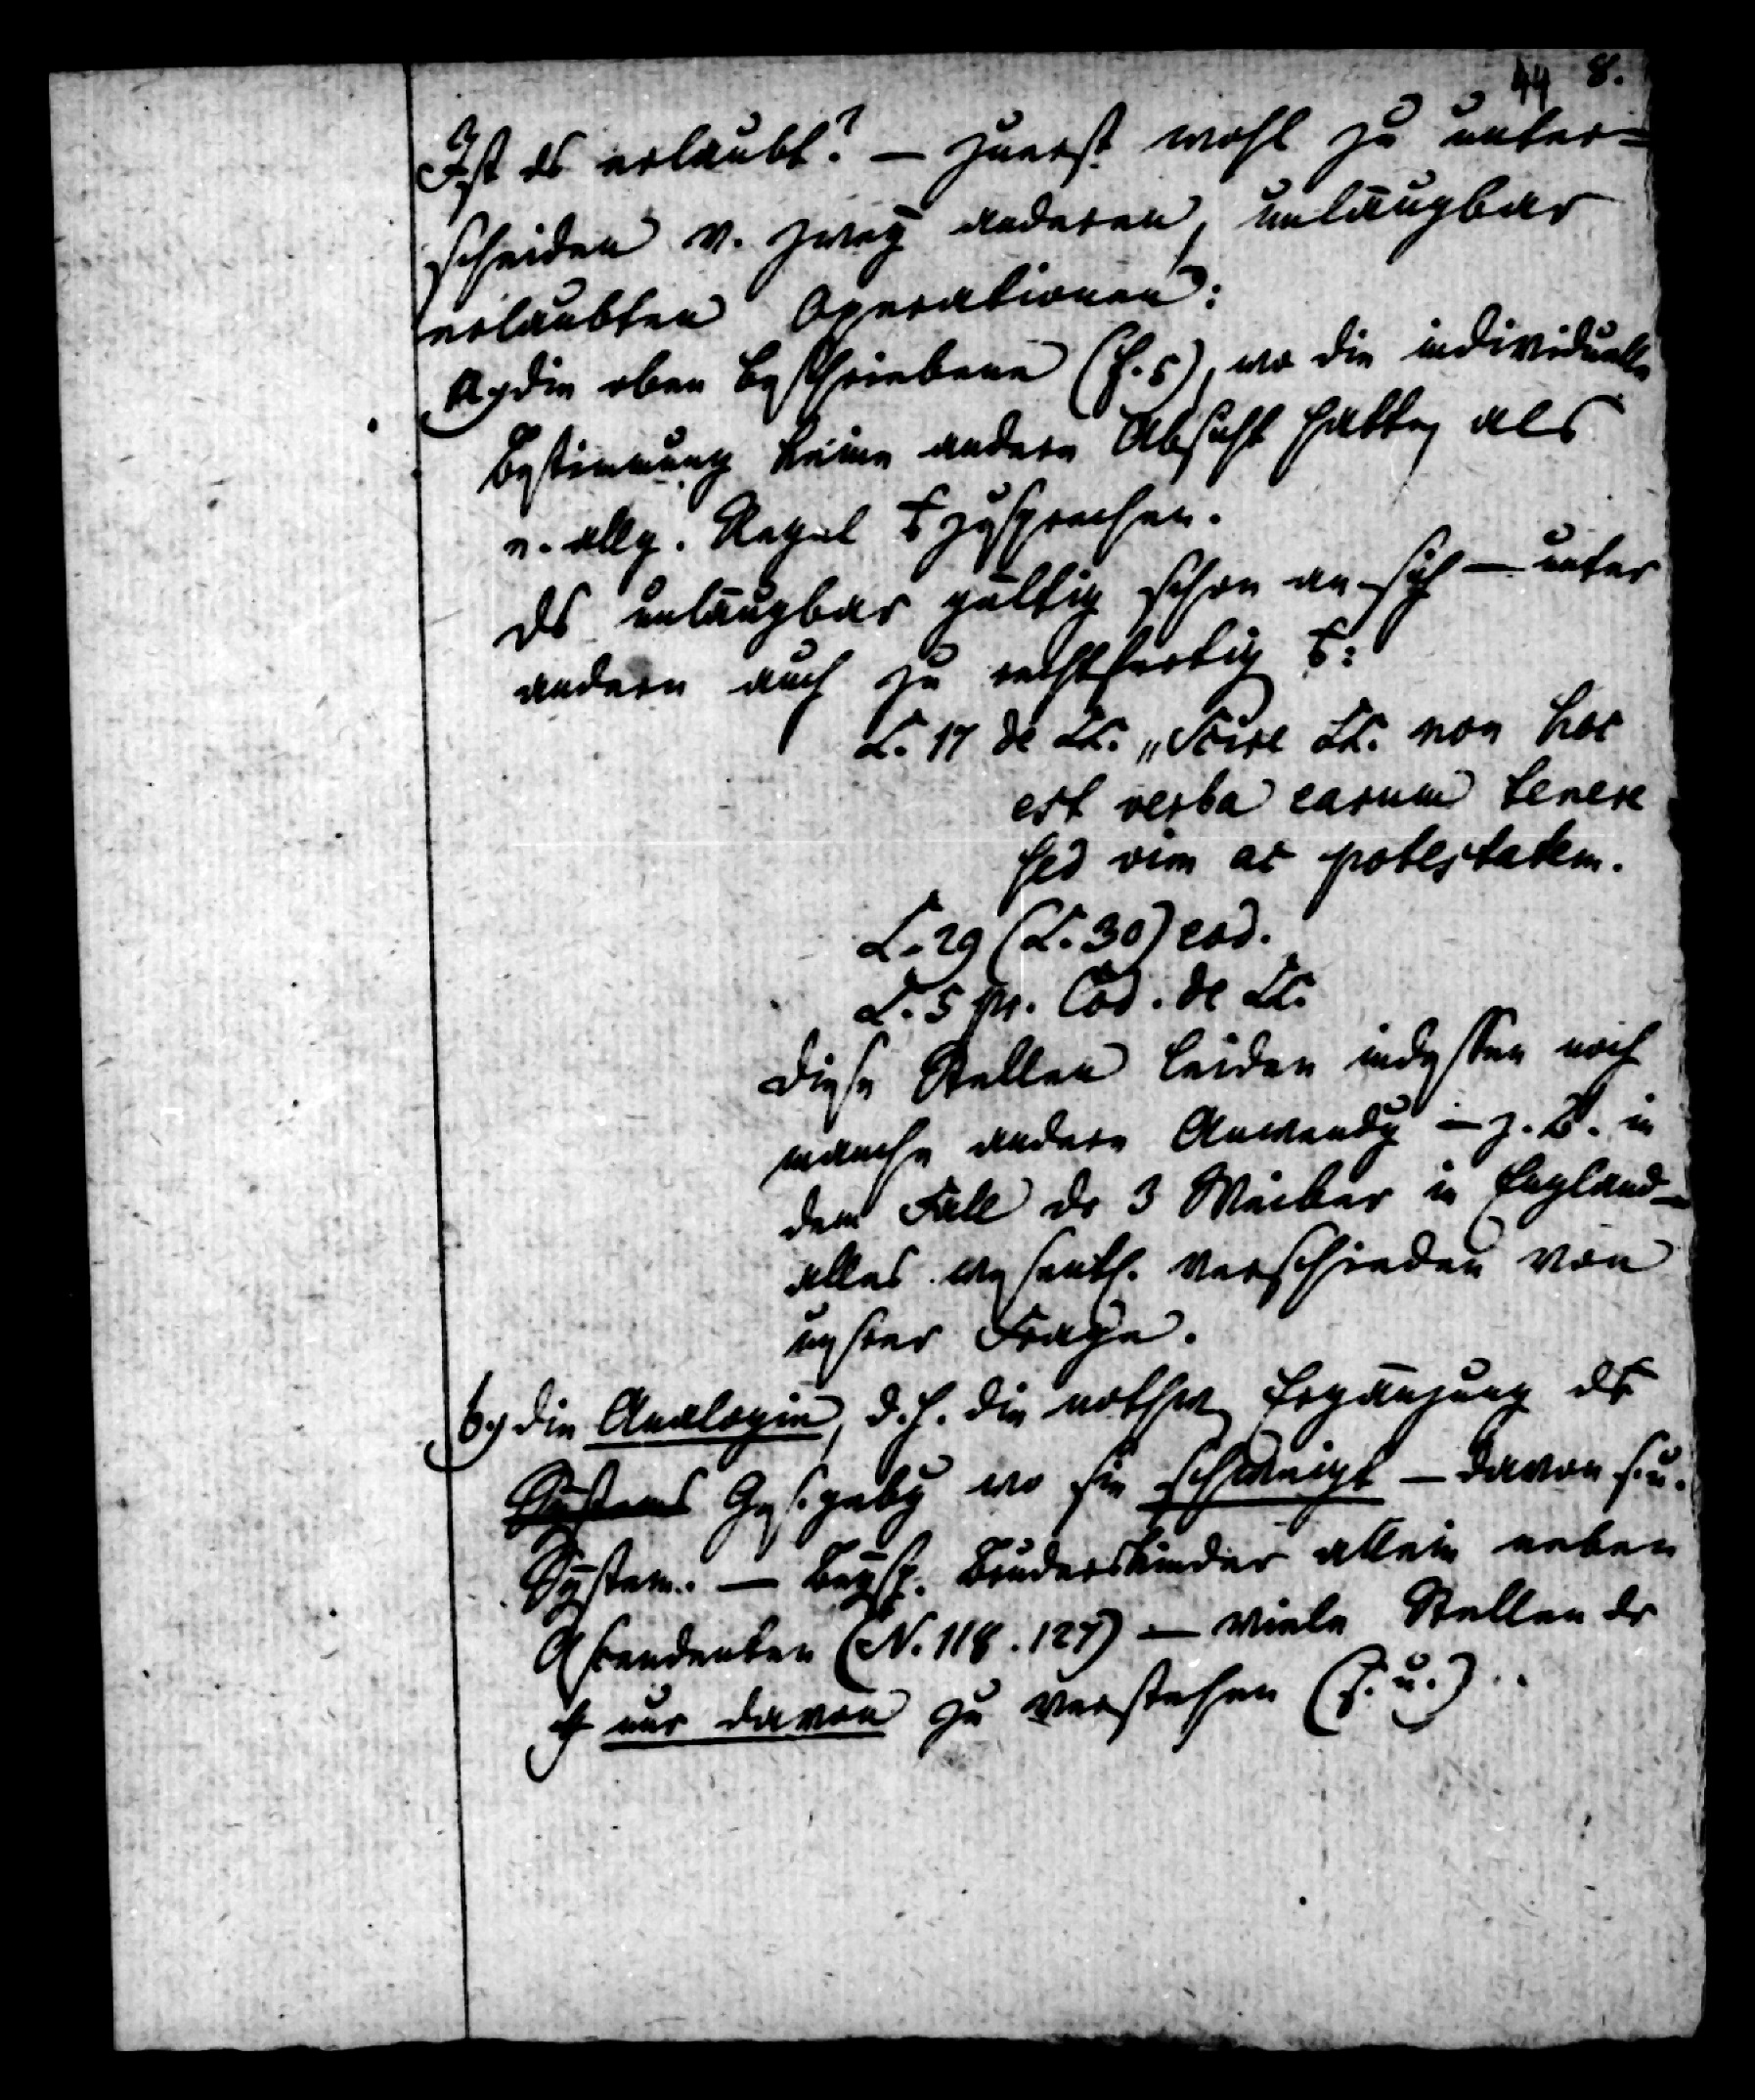 44 8.
Ist ds erlaubt? — zuerst wohl zu unter=
scheiden v. zwey anderen, unläugbar
erlaubten Operationen:
a) die oben beschriebene (f. 5), wo die individuelle
Bestimmung keine andere Absicht hatte, als
e. allg. Regel zusprechen.
ds unläugbar gültig schon an sich — unter
andern auch zu rechtfertig
L. 17 de LL. „Scire LL. non hoc
est verba earum tenere
sed vim ac potestatem.
L. 29 (L. 30) eod.
L. 5 pr. Cod. de LL.
Diese Stellen leiden indessen noch
manche andere Anwendg — z. B. in
dem Fall dr 3 Weiber in England —
alles wesentl. verschieden von
unsrer Frage.
b) die Analogie, d. h. die nothw. Ergänzung dr
Systems Gesezgebg wo sie schweigt — davon s. u.
System. — Beysp. Bruderskinder allein neben
Ascendenten (N. 118. 127) — viele Stellen dr
nur davon zu verstehen (s. u.)